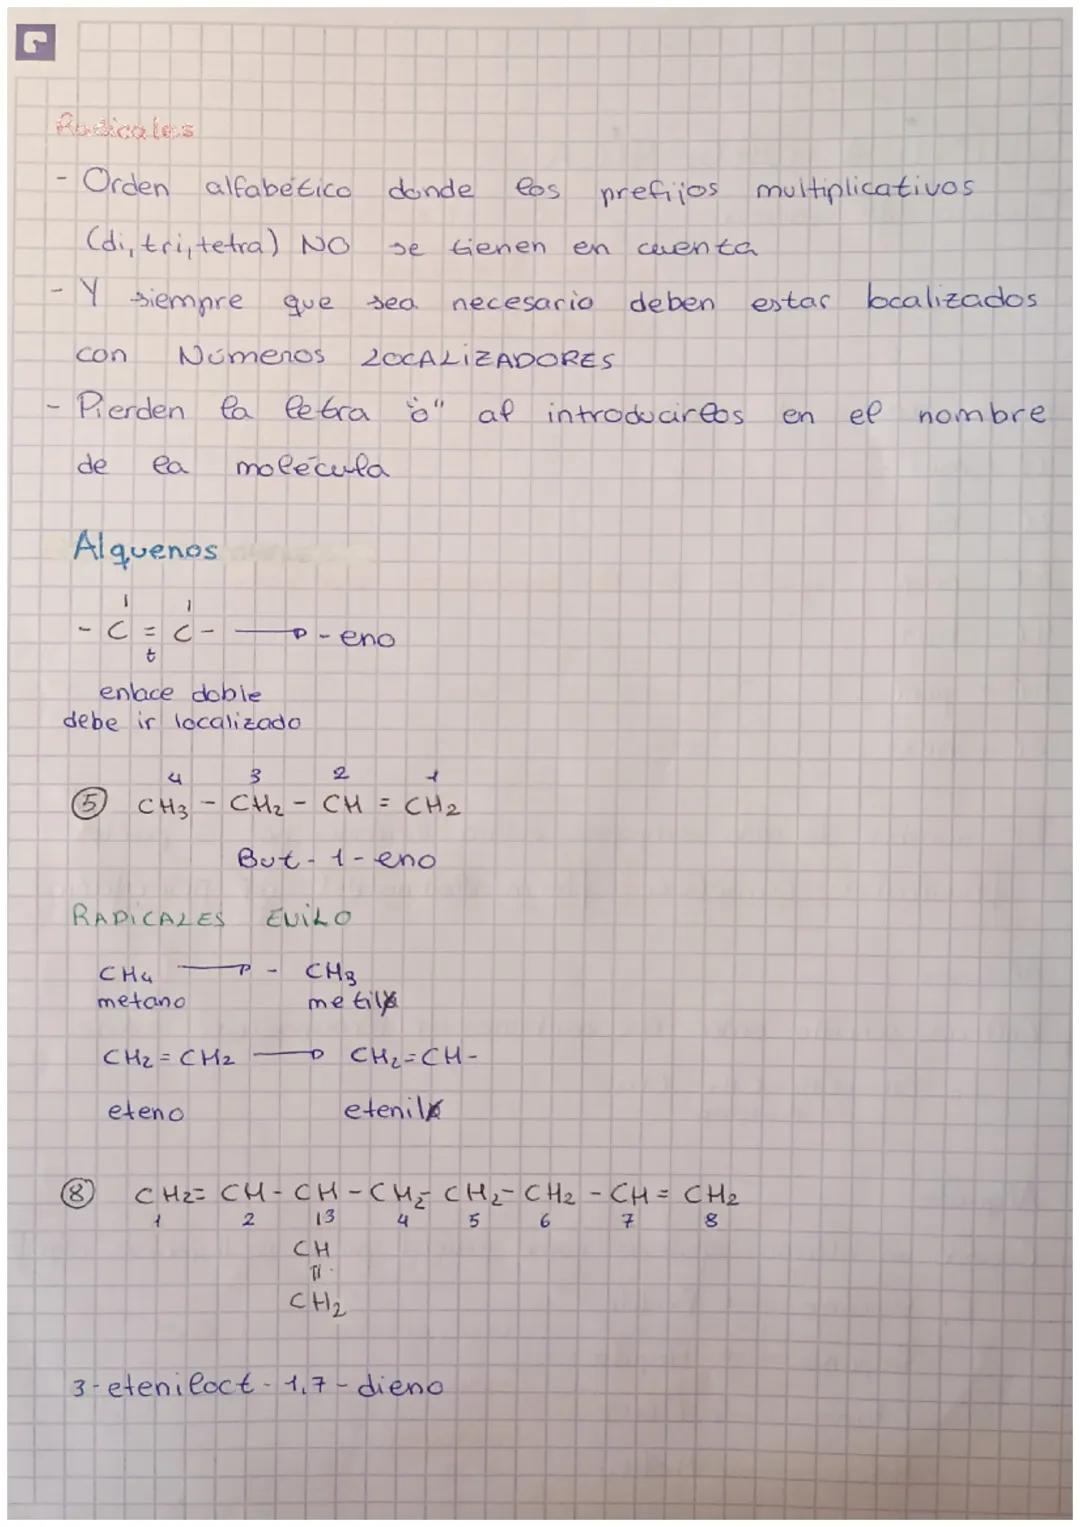 Radicales
- Orden alfabético donde los prefijos multiplicativos
(di, tri, tetra) NO se tienen en cuenta
- Y siempre que sea necesario deben estar localizados
con Números LOCALIZADORES
- Pierden la letra "o" al introducirlos en el nombre
de la molécula
Alquenos
- C = C - → - eno
enlace doble
debe ir localizado
4 3 2 1
⑤ CH3 - CH2 - CH = CH2
But - 1 - eno
RADICALES ENILO
CH4 → - CH3
metano metilo
CH2 = CH2 → CH2 = CH -
eteno etenilo
⑧ CH2 = CH - CH - CH2 - CH2 - CH2 - CH = CH2
1 2 3 4 5 6 7 8
CH
CH2
3-eteniloct - 1,7 - dieno